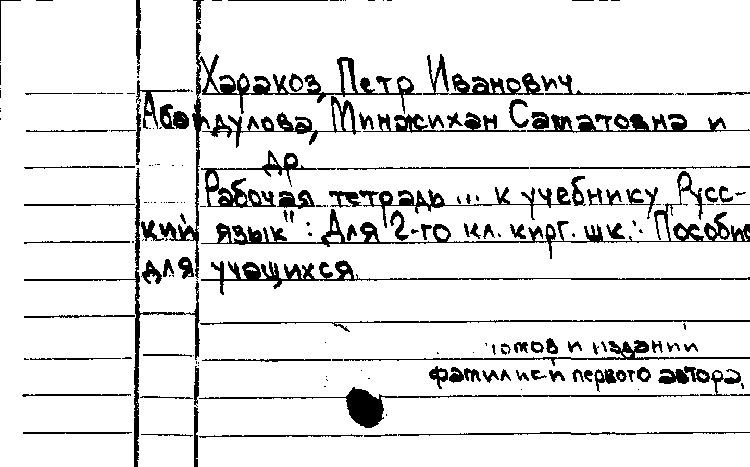 Харакоз, Петр Иванович.
Абайдулова, Минжихан Саматовна и
др.
Рабочая тетрадь ... к учебнику „Русс-
кий язык" : Для 2-го кл. кирг. шк. : Пособие
для учащихся.
томов и изданий
фамилией первого автора,